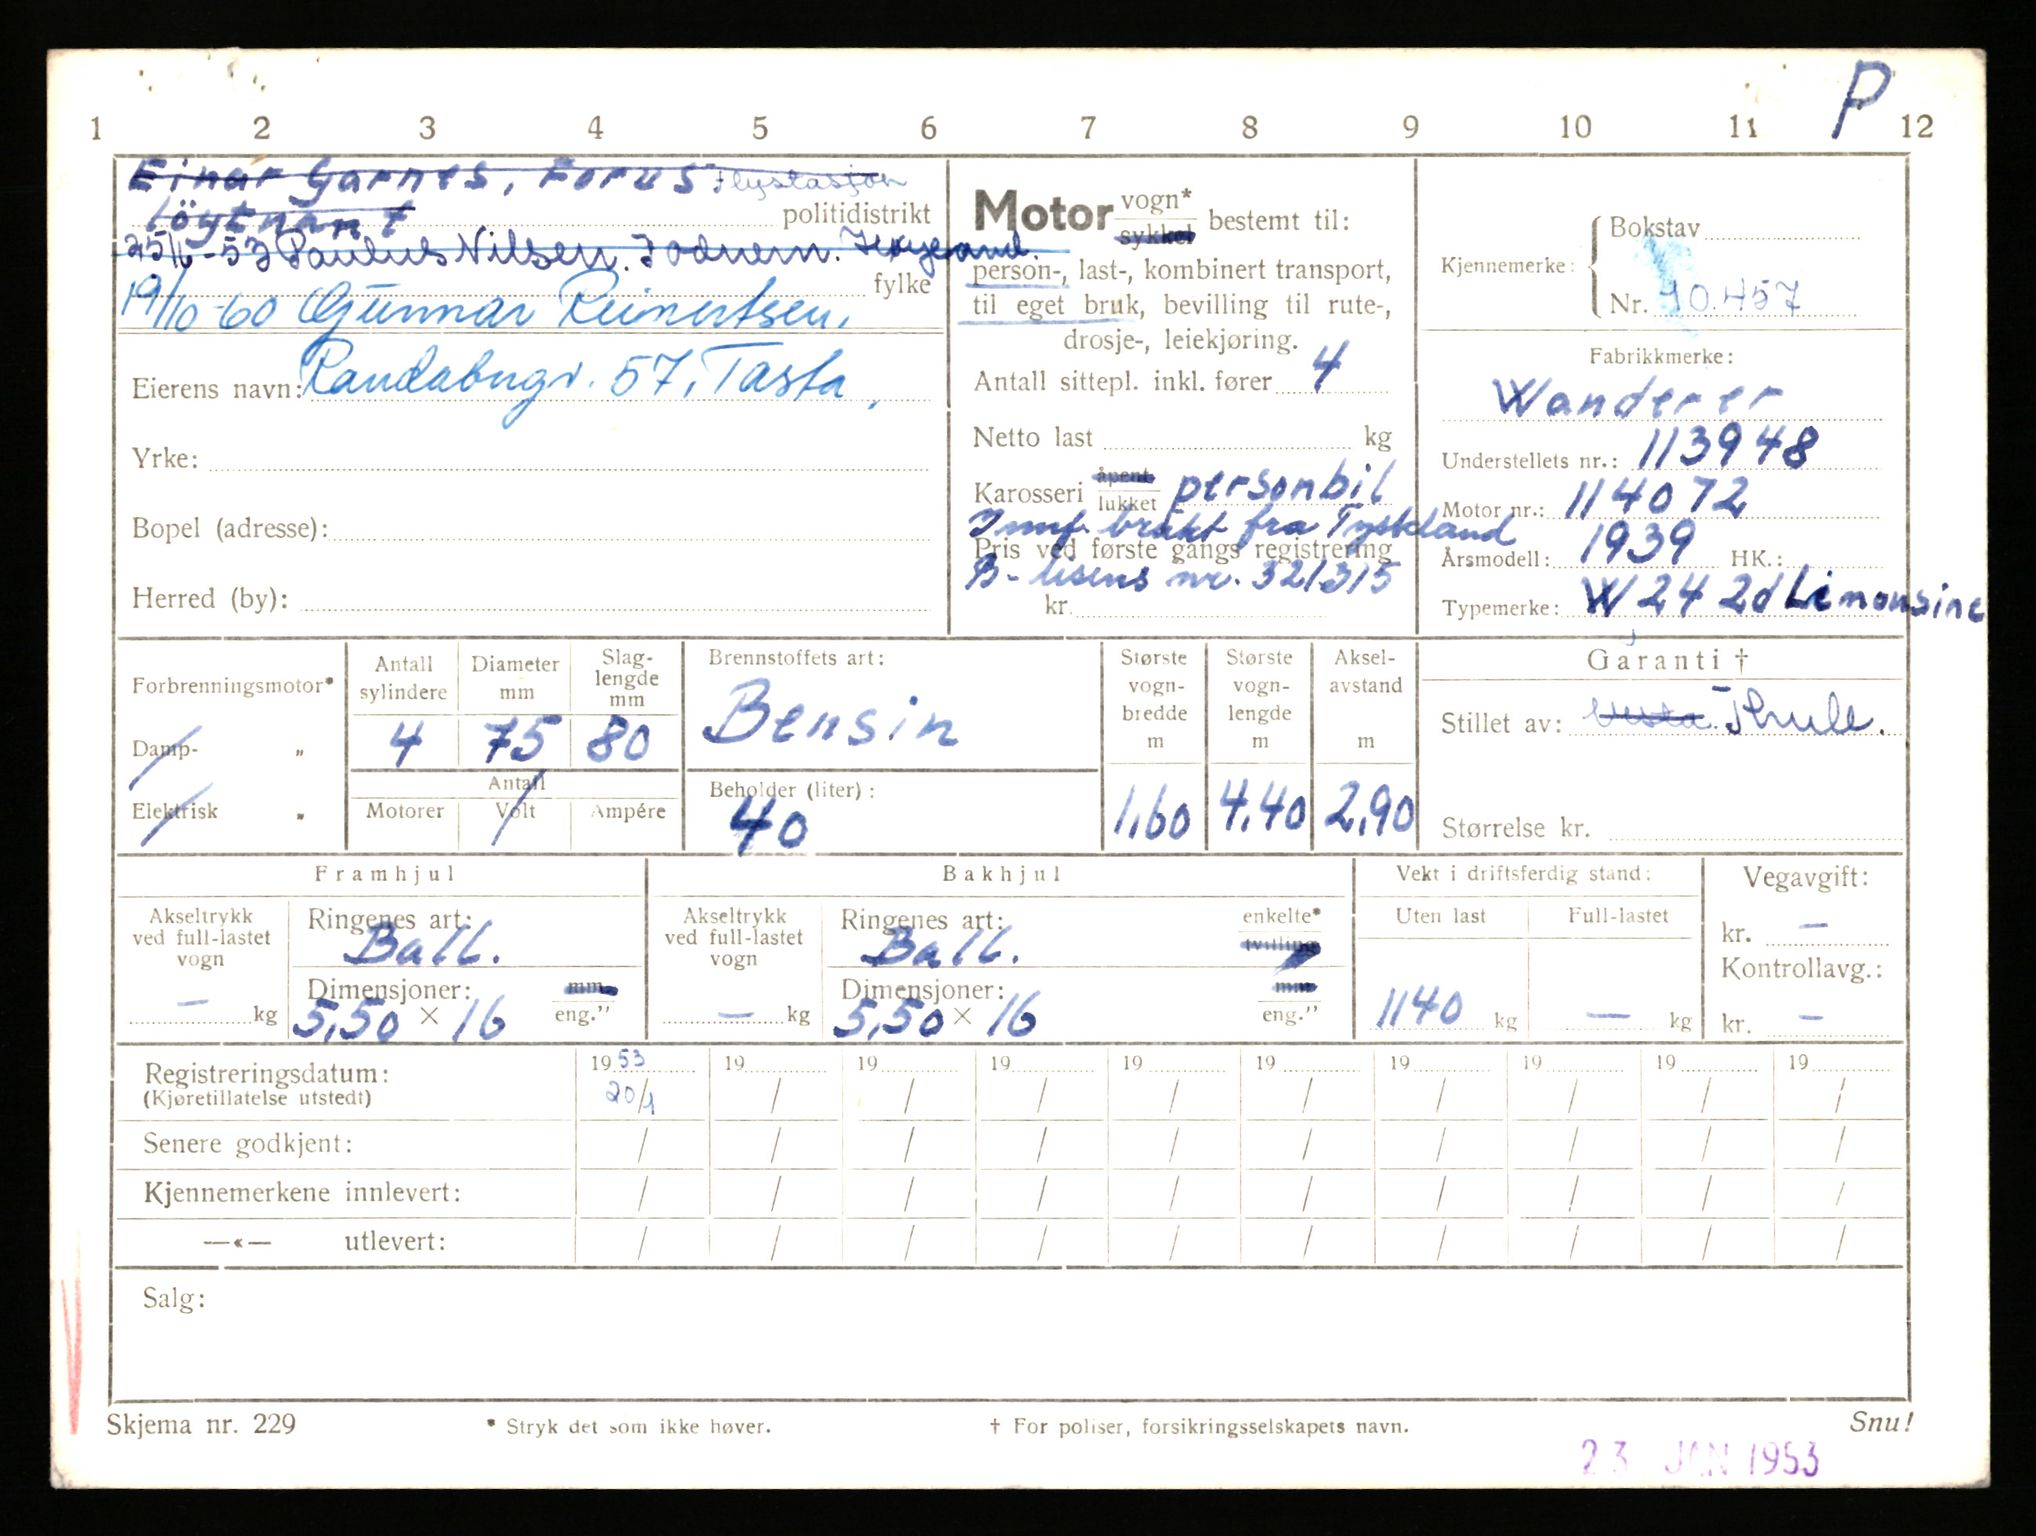 P
1 2 3 4 5 6 7 8 9 10 11 12
Einar Garnes, Forus Flystasjon
löytnant
politidistrikt
25/6-53 Paulus Nilsen. Jodnem.
fylke
19/10-60 Gunnar Reinertsen,
Eierens navn: Randabngv. 57, Tasta,
Yrke:
Bopel (adresse):
Herred (by):
Motor vogn* sykkel bestemt til:
person-, last-, kombinert transport,
til eget bruk, bevilling til rute-,
drosje-, leiekjøring.
Antall sittepl. inkl. fører 4
Netto last kg
Karosseri åpent lukket personbil
Innf. brakt fra Tyskland
Pris ved første gangs registrering
B-lisens nr. 321315
kr.
Kjennemerke: Bokstav
Nr. 10.457
Fabrikkmerke:
Wanderer
Understellets nr.: 113948
Motor nr.: 114072
Årsmodell: 1939 HK.:
Typemerke: W 24 2d Limousine
Forbrenningsmotor*
Damp- „
Elektrisk „
Antall sylindere
Diameter mm
Slag-lengde mm
4 75 80
Antall
Motorer Volt Ampére
Brennstoffets art:
Bensin
Beholder (liter):
40
Største vogn-bredde m
Største vogn-lengde m
Aksel-avstand m
1,60 4,40 2,90
Garanti †
Stillet av: Vesta Thule.
Størrelse kr.
Framhjul
Akseltrykk ved full-lastet vogn
— kg
Ringenes art:
Ball.
Dimensjoner: mm eng."
5,50 × 16
Bakhjul
Akseltrykk ved full-lastet vogn
— kg
Ringenes art: enkelte* tvilling
Ball.
Dimensjoner: mm eng."
5,50 × 16
Vekt i driftsferdig stand:
Uten last Full-lastet
1140 kg — kg
Vegavgift:
kr. —
Kontrollavg.:
kr. —
Registreringsdatum: 1953 19 19 19 19 19 19 19 19 19
(Kjøretillatelse utstedt) 20/1 / / / / / / / / /
Senere godkjent: / / / / / / / / / /
Kjennemerkene innlevert: / / / / / / / / / /
—«— utlevert: / / / / / / / / / /
Salg:
Skjema nr. 229 * Stryk det som ikke høver. † For poliser, forsikringsselskapets navn. Snu!
23 JAN 1953